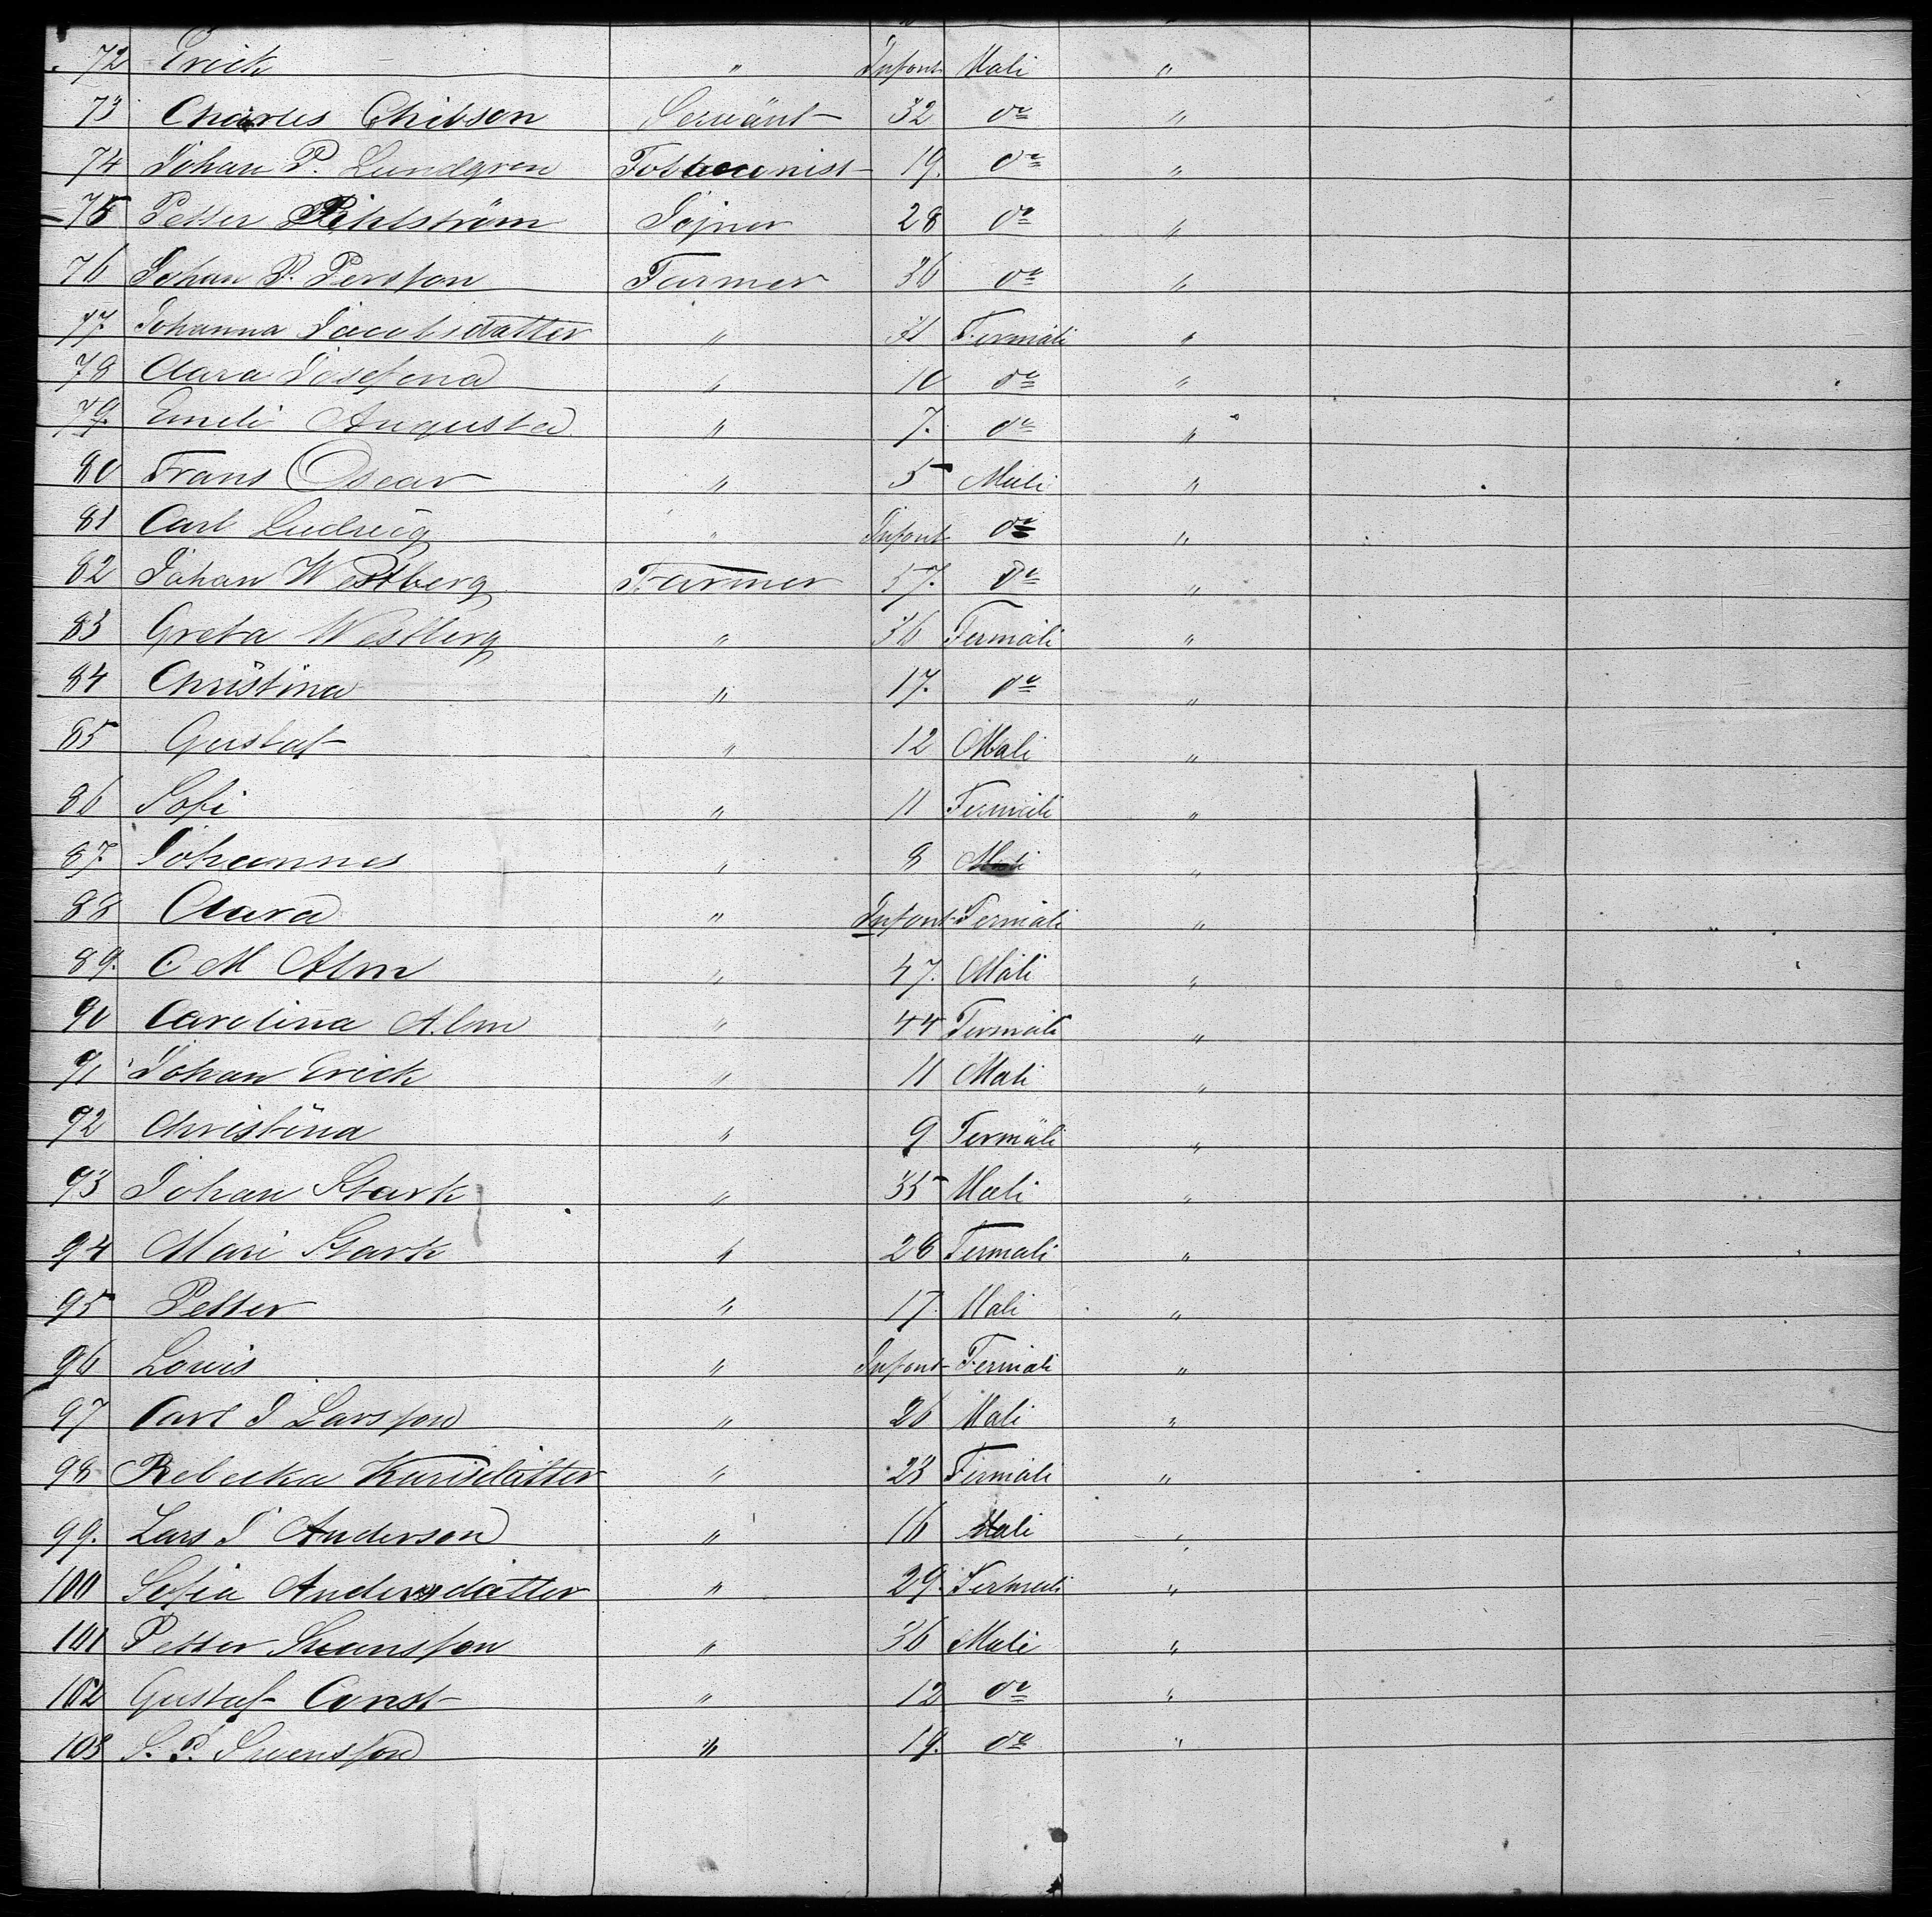 72 Erick " Infant Mali "
73 Charles Chibson Servänt 32 do "
74 Johan P. Lundgren Tobacconist 19. do "
75 Petter Pihlström Jojner 28 do "
76 Johan P. Persson Farmer 36 do "
77. Johanna Jacobsdatter " 31 Fermäli "
78 Clara Josefina " 10 do "
79. Emeli Augusta " 7. do "
80 Frans Oscar " 5 Mali "
81 Carl Ludwig " Infant do "
82 Johan Westberg Farmer 37. do "
83 Greta Westberg " 36 Fermäli "
84 Christina " 17. do "
85 Gustaf " 12 Mali "
86 Sofi " 11 Fermäli "
87. Johannes " 8 Mali "
88 Clara " Infant Fermäli "
89. C M Alm " 47. Mäli "
90 Carolina Alm " 44 Fermäli "
91 Johan Erick " 11 Mali "
92 Christina " 9 Fermäli "
93 Johan Stark " 35 Mali "
94 Mari Stark " 28 Fermali "
95 Petter " 17. Mali "
96 Lowis " Infant Fermäli "
97 Carl J Larsson " 26 Mali "
98 Rebecka Karisdatter " 23 Fermäli "
99. Lars J Anderson " 16 Mali "
100 Sofia Andersdatter " 29. Fermali "
101 Petter Svensson " 36 Mali "
102 Gustaf Const " 12 do "
103 S. P. Svensson " 19. do "